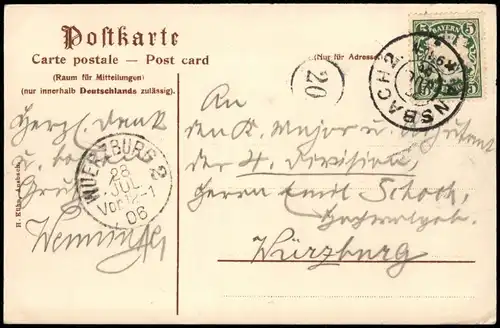 Postkarte
Carte postale — Post card
(Raum für Mitteilungen)
(nur innerhalb Deutschlands zulässig).
(Nur für Adresse)
5 BAYERN 5
ANSBACH 2
20
WUERZBURG 2
28
JUL
Vor 12-1
06
H. Kühn, Ansbach.
Herzl. Dank
u.
Gruß
An
den K. Major u.
der 4. Division,
Herrn Emil Schoch,
Hochwolgeb.
Würzburg